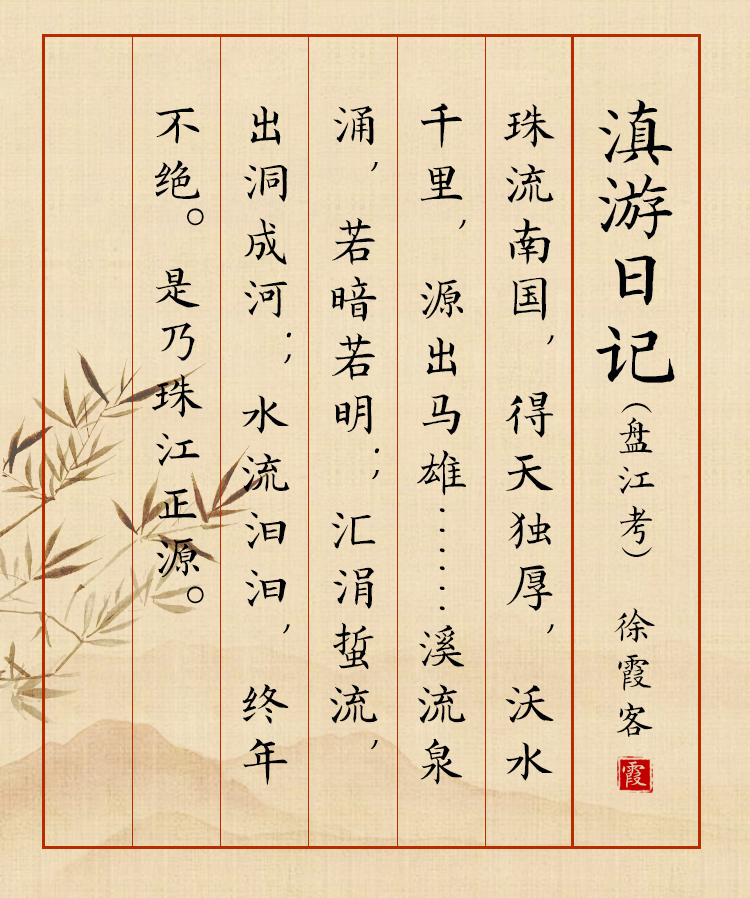 滇游日记（盘江考） 徐霞客
霞
珠流南国，得天独厚，沃水
千里，源出马雄……溪流泉
涌，若暗若明；汇涓蜇流，
出洞成河；水流汩汩，终年
不绝。是乃珠江正源。